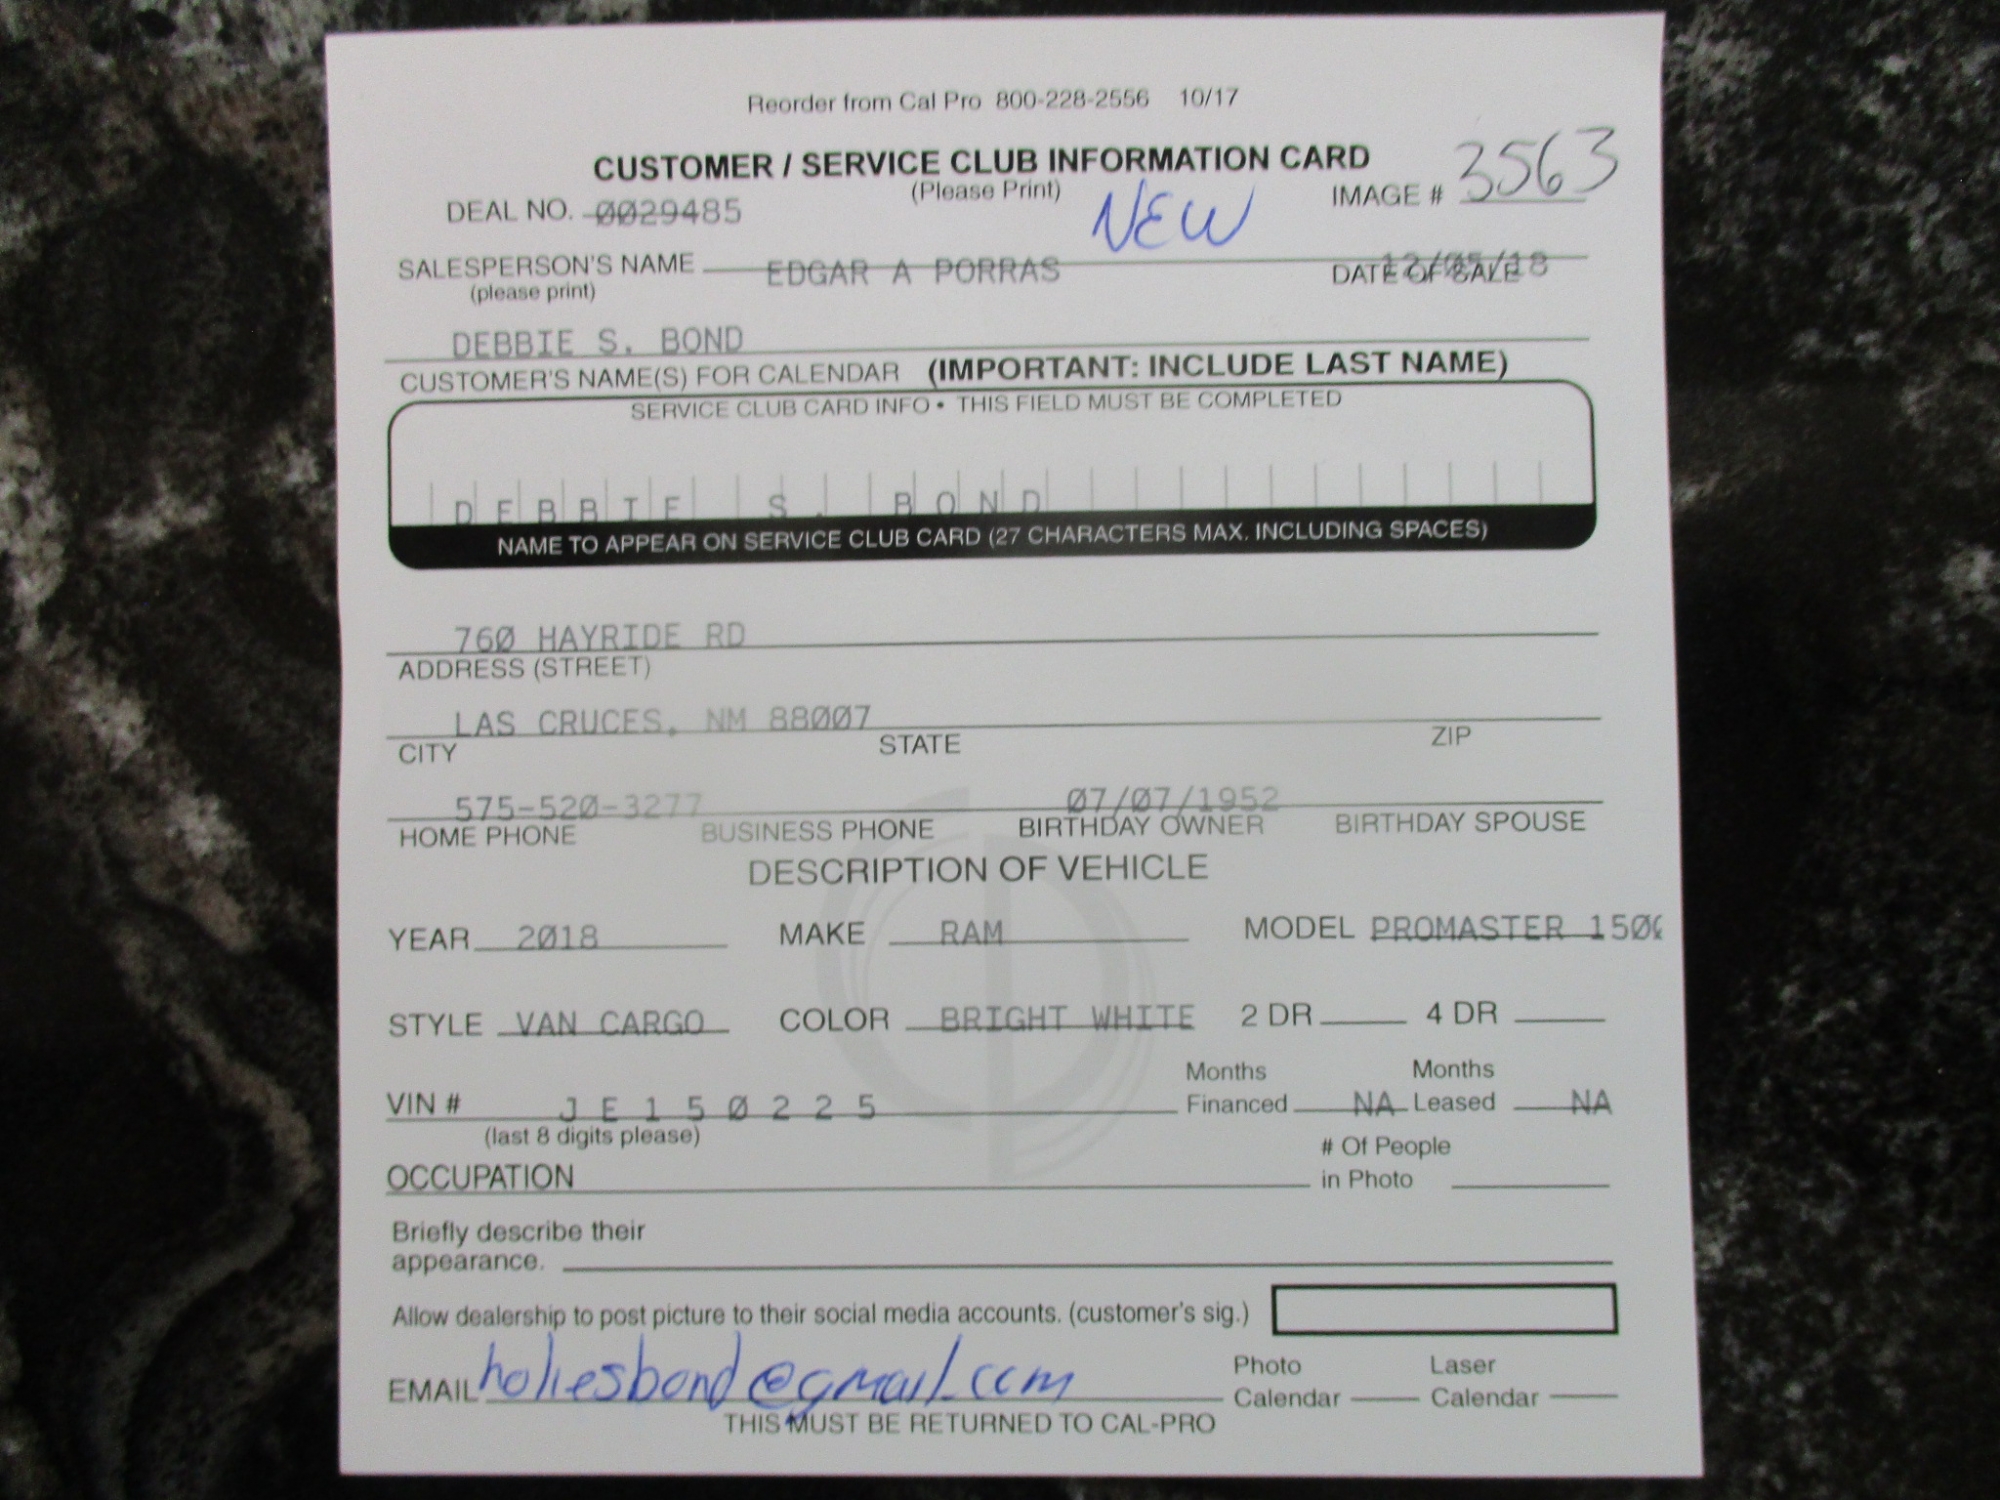 Reorder from Cal Pro 800-228-2556 10/17
CUSTOMER / SERVICE CLUB INFORMATION CARD
(Please Print)
NEW
IMAGE # 3563
DEAL NO. 0029485
SALESPERSON'S NAME EDGAR A PORRAS
(please print)
DATE OF SALE
DEBBIE S. BOND
CUSTOMER'S NAME(S) FOR CALENDAR (IMPORTANT: INCLUDE LAST NAME)
SERVICE CLUB CARD INFO • THIS FIELD MUST BE COMPLETED
DEBBIE S. BOND
NAME TO APPEAR ON SERVICE CLUB CARD (27 CHARACTERS MAX. INCLUDING SPACES)
760 HAYRIDE RD
ADDRESS (STREET)
LAS CRUCES, NM 88007
CITY STATE ZIP
575-520-3277 07/07/1952
HOME PHONE BUSINESS PHONE BIRTHDAY OWNER BIRTHDAY SPOUSE
DESCRIPTION OF VEHICLE
YEAR 2018 MAKE RAM MODEL PROMASTER 150
STYLE VAN CARGO COLOR BRIGHT WHITE 2 DR 4 DR
VIN # J E 1 5 0 2 2 5 Months Financed NA Months Leased NA
(last 8 digits please)
OCCUPATION # Of People in Photo
Briefly describe their
appearance.
Allow dealership to post picture to their social media accounts. (customer's sig.)
EMAIL holiesbond@gmail.com Photo Calendar Laser Calendar
THIS MUST BE RETURNED TO CAL-PRO